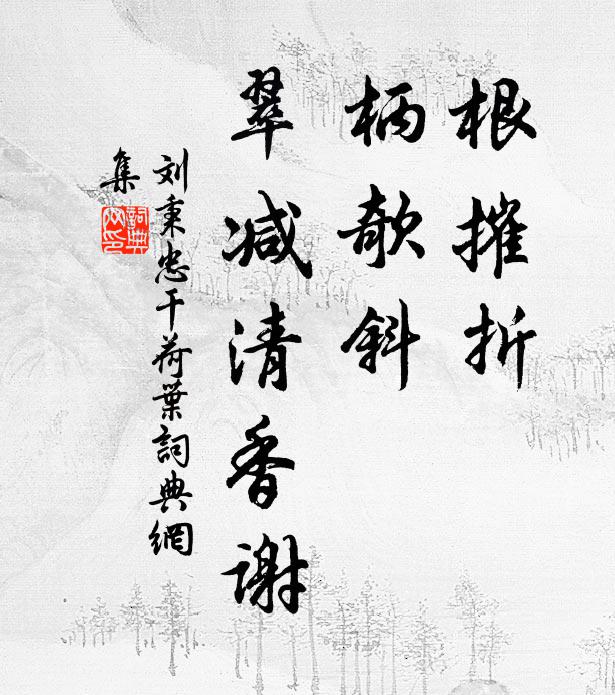 根摧折
柄欹斜
翠减清香谢
刘秉忠干荷葉詞典網
集
詞典
网印